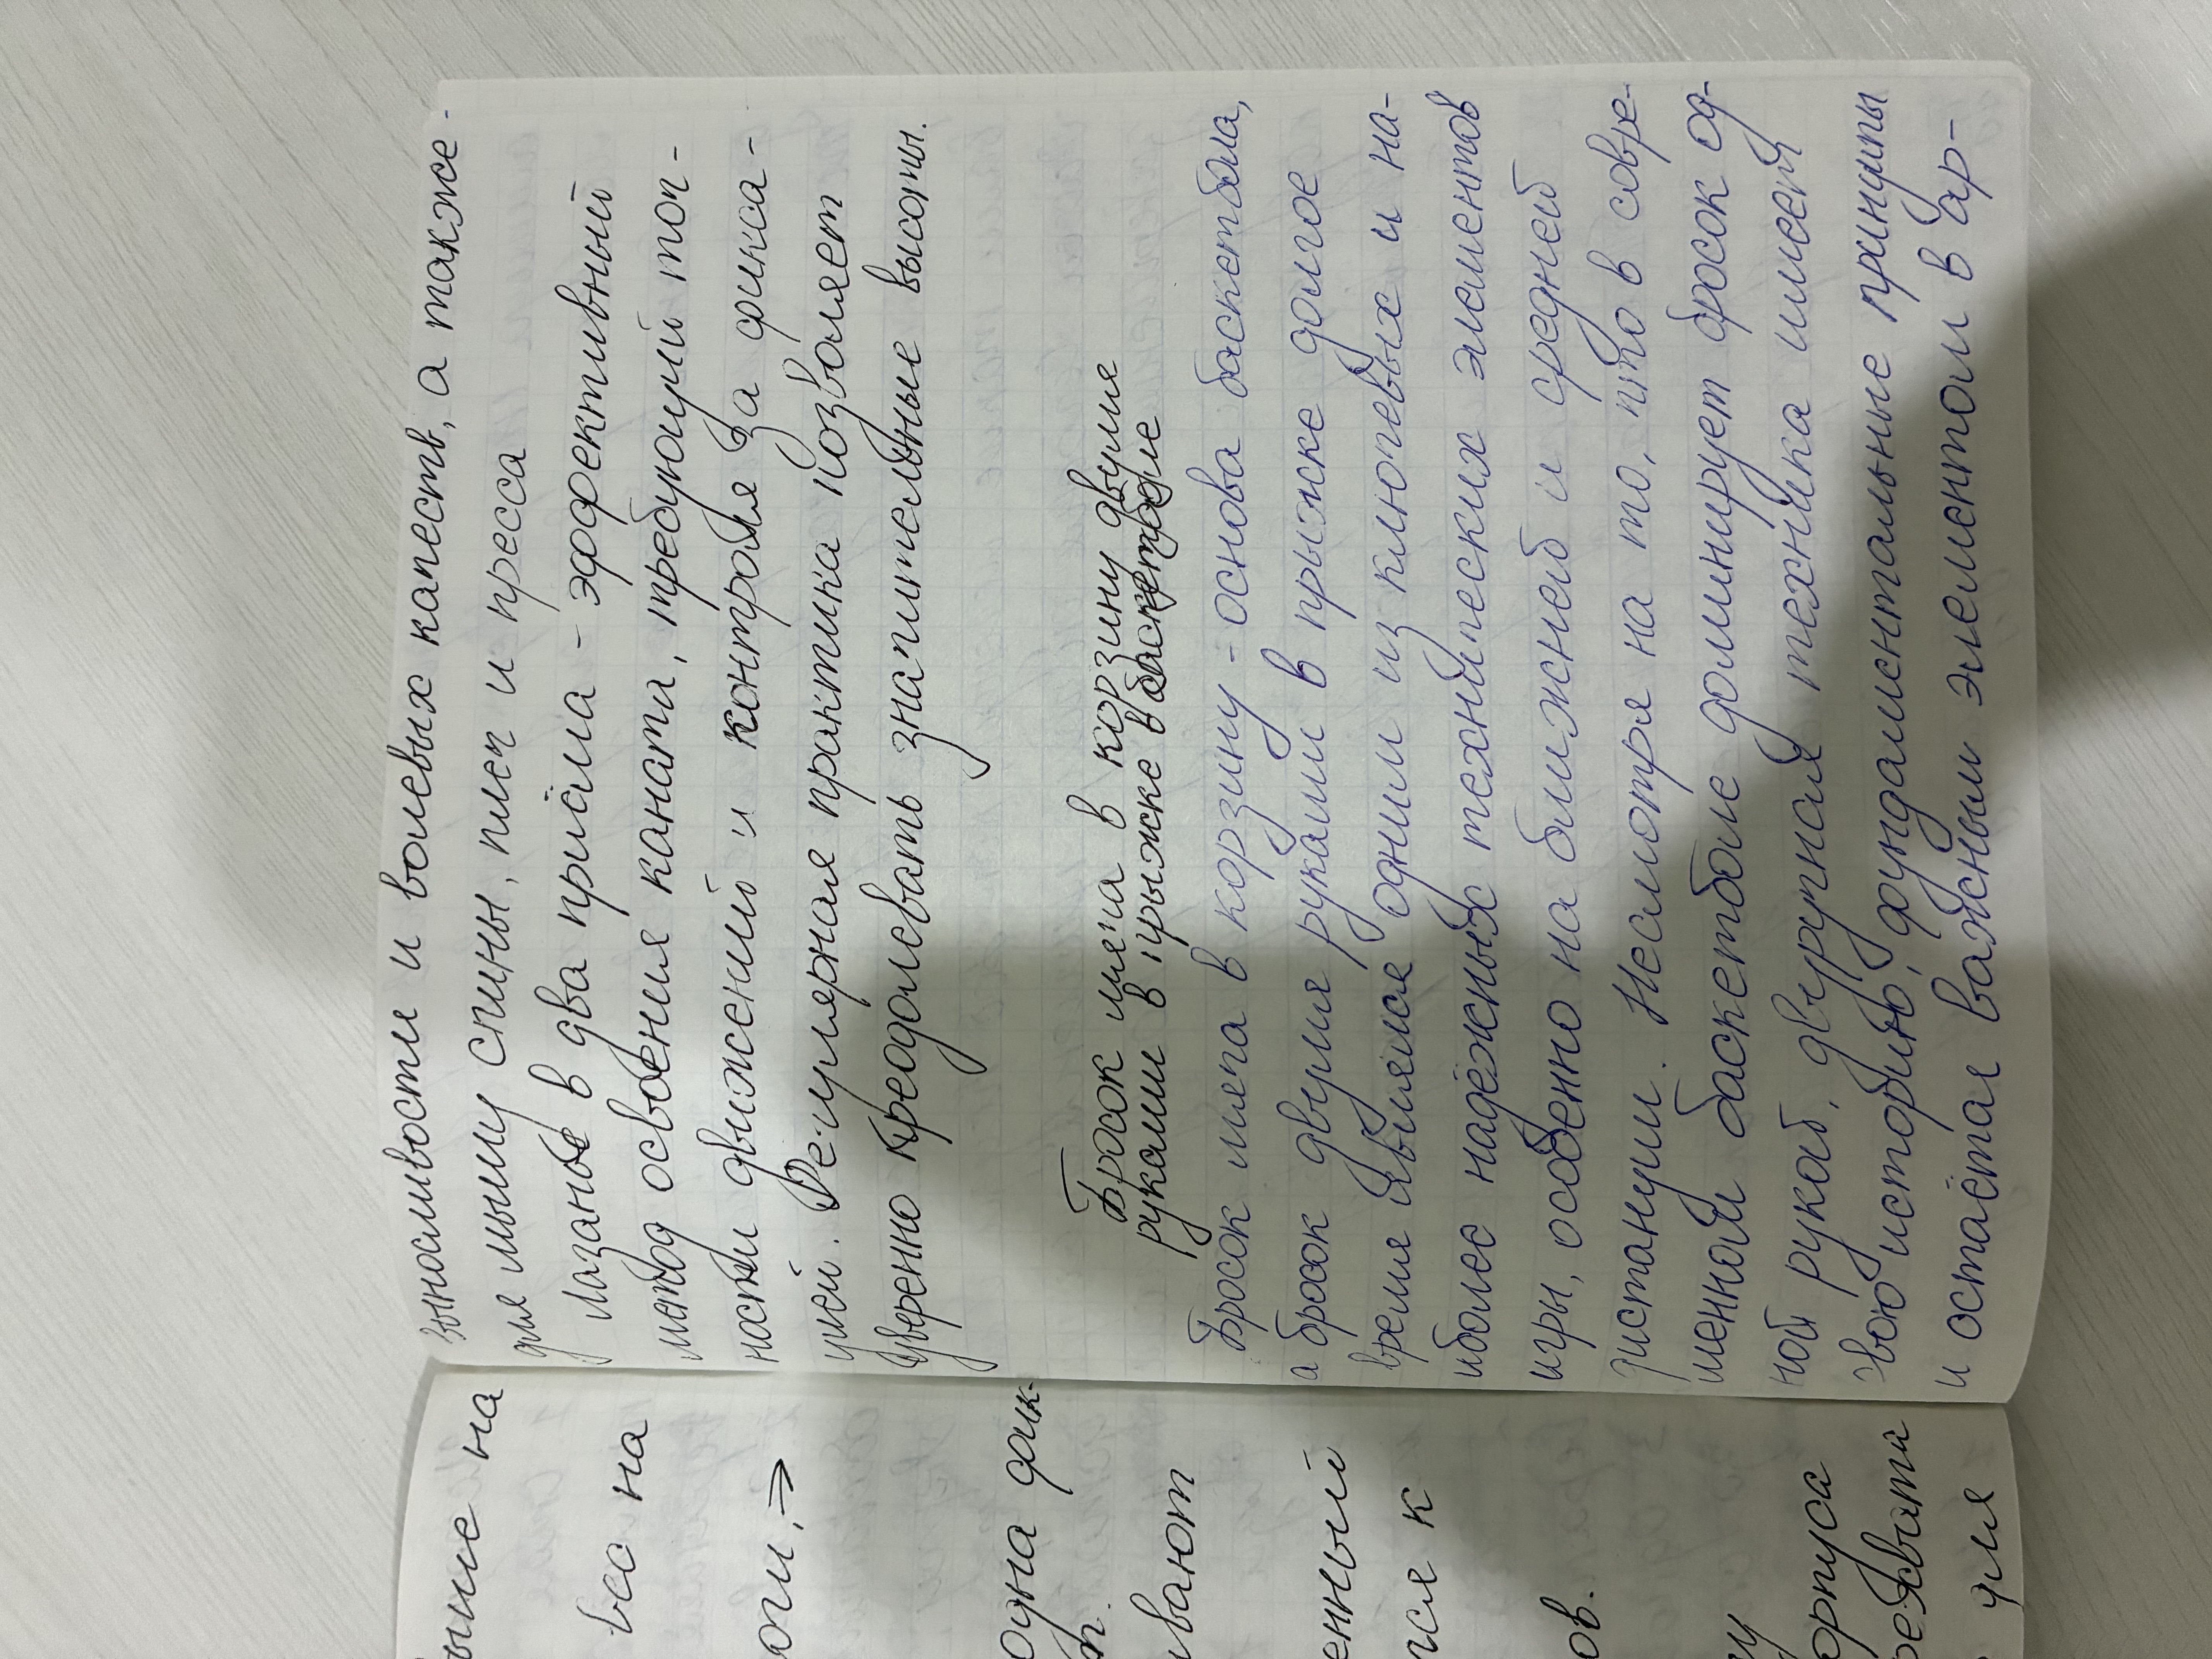 выносливости и волевых качеств, а также
для мышц спины, плеч и пресса
Лазанье в два приёма - эффективный
метод освоения каната, требующий точ-
ности движений и контроля за фикса-
цией. Регулярная практика позволяет
уверенно преодолевать значительные высоты.
Бросок мяча в корзину двумя
руками в прыжке в баскетболе
Бросок мяча в корзину - основа баскетбола,
а бросок двумя руками в прыжке долгое
время являлся одним из ключевых и на-
иболее надёжных технических элементов
игры, особенно на ближней и средней
дистанции. Несмотря на то, что в совре-
менном баскетболе доминирует бросок од-
ной рукой, двуручная техника имеет
свою историю, фундаментальные принципы
и остаётся важным элементом в ар-
на
вес на
одна
ивают
енный
ся к
ов.
орпуса
для